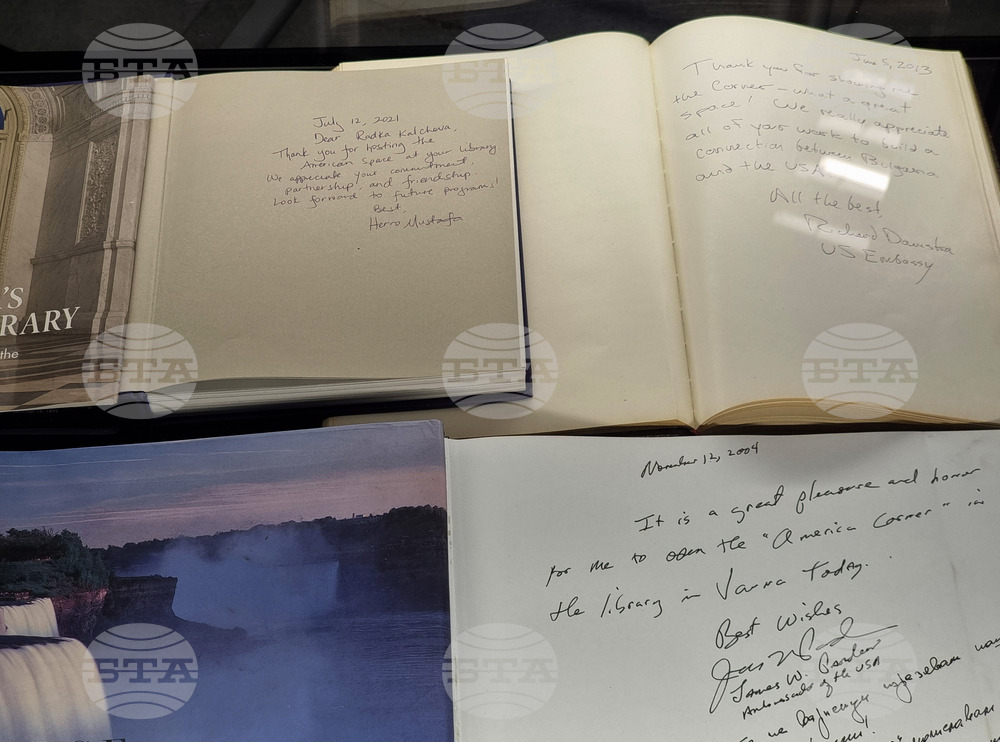 July 12, 2021
Dear Radka Kalcheva,
Thank you for hosting the
American space at your library
We appreciate your commitment,
partnership, and friendship.
Look forward to future programs!
Best,
Herro Mustafa
'S
RARY
the
June 5, 2013
Thank you for showing me
the Corner – what a great
space! We really appreciate
all of your work to build a
connection between Bulgaria
and the USA
All the best,
Richard
US Embassy
November 12, 2004
It is a great pleasure and honor
for me to open the "America Corner" in
the library in Varna Today.
Best Wishes
James W. Pardew
Ambassador of the USA
БТА
БТА
БТА
БТА
БТА
БТА
БТА
БТА